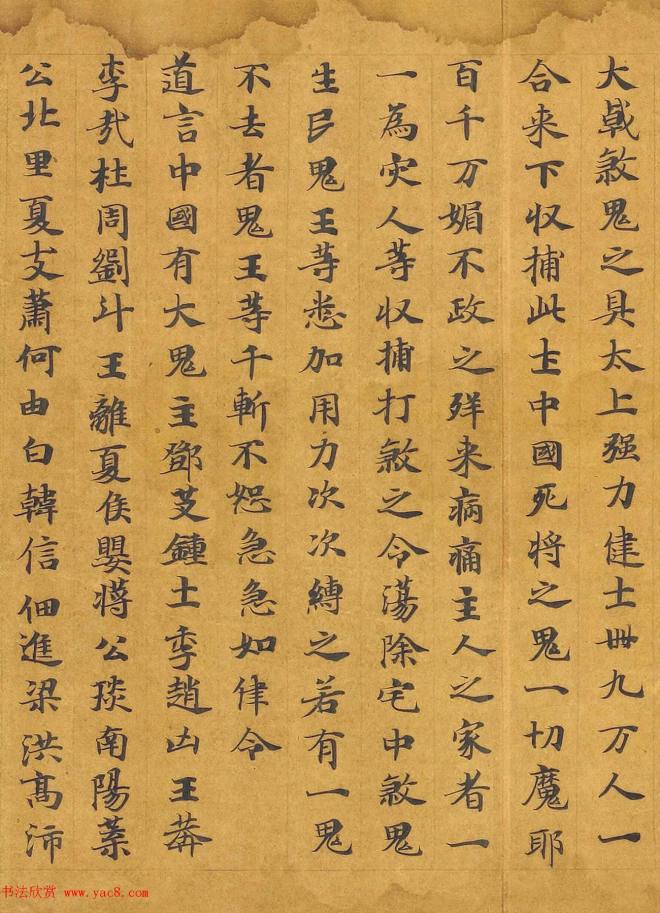 大戟煞鬼之具太上强力健士卌九万人一
合来下收捕此土中國死将之鬼一切魔耶
百千万媚不政之鲜来病痛主人之家者一
一為灾人等收捕打煞之令蕩除宅中煞鬼
生民鬼王等悉加用力次次縛之若有一鬼
不去者鬼王等千斬不恕急急如律令
道言中國有大鬼主鄧艾鍾士季趙山王莽
李敖杜周劉斗王離夏侯嬰蔣公琰南陽葉
公北里夏支蕭何由白韓信佃進梁洪髙沛
书法欣赏 www.yac8.com